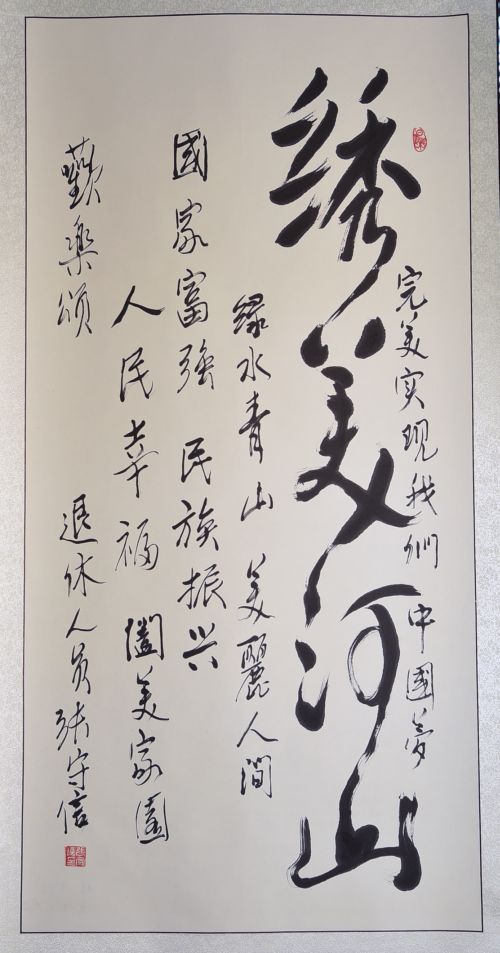 完美实现我們 中國夢
绣美河山
绿水青山 美麗人间
國家富強 民族振兴
人民幸福 闔美家園
歡樂颂 退休人员张守信